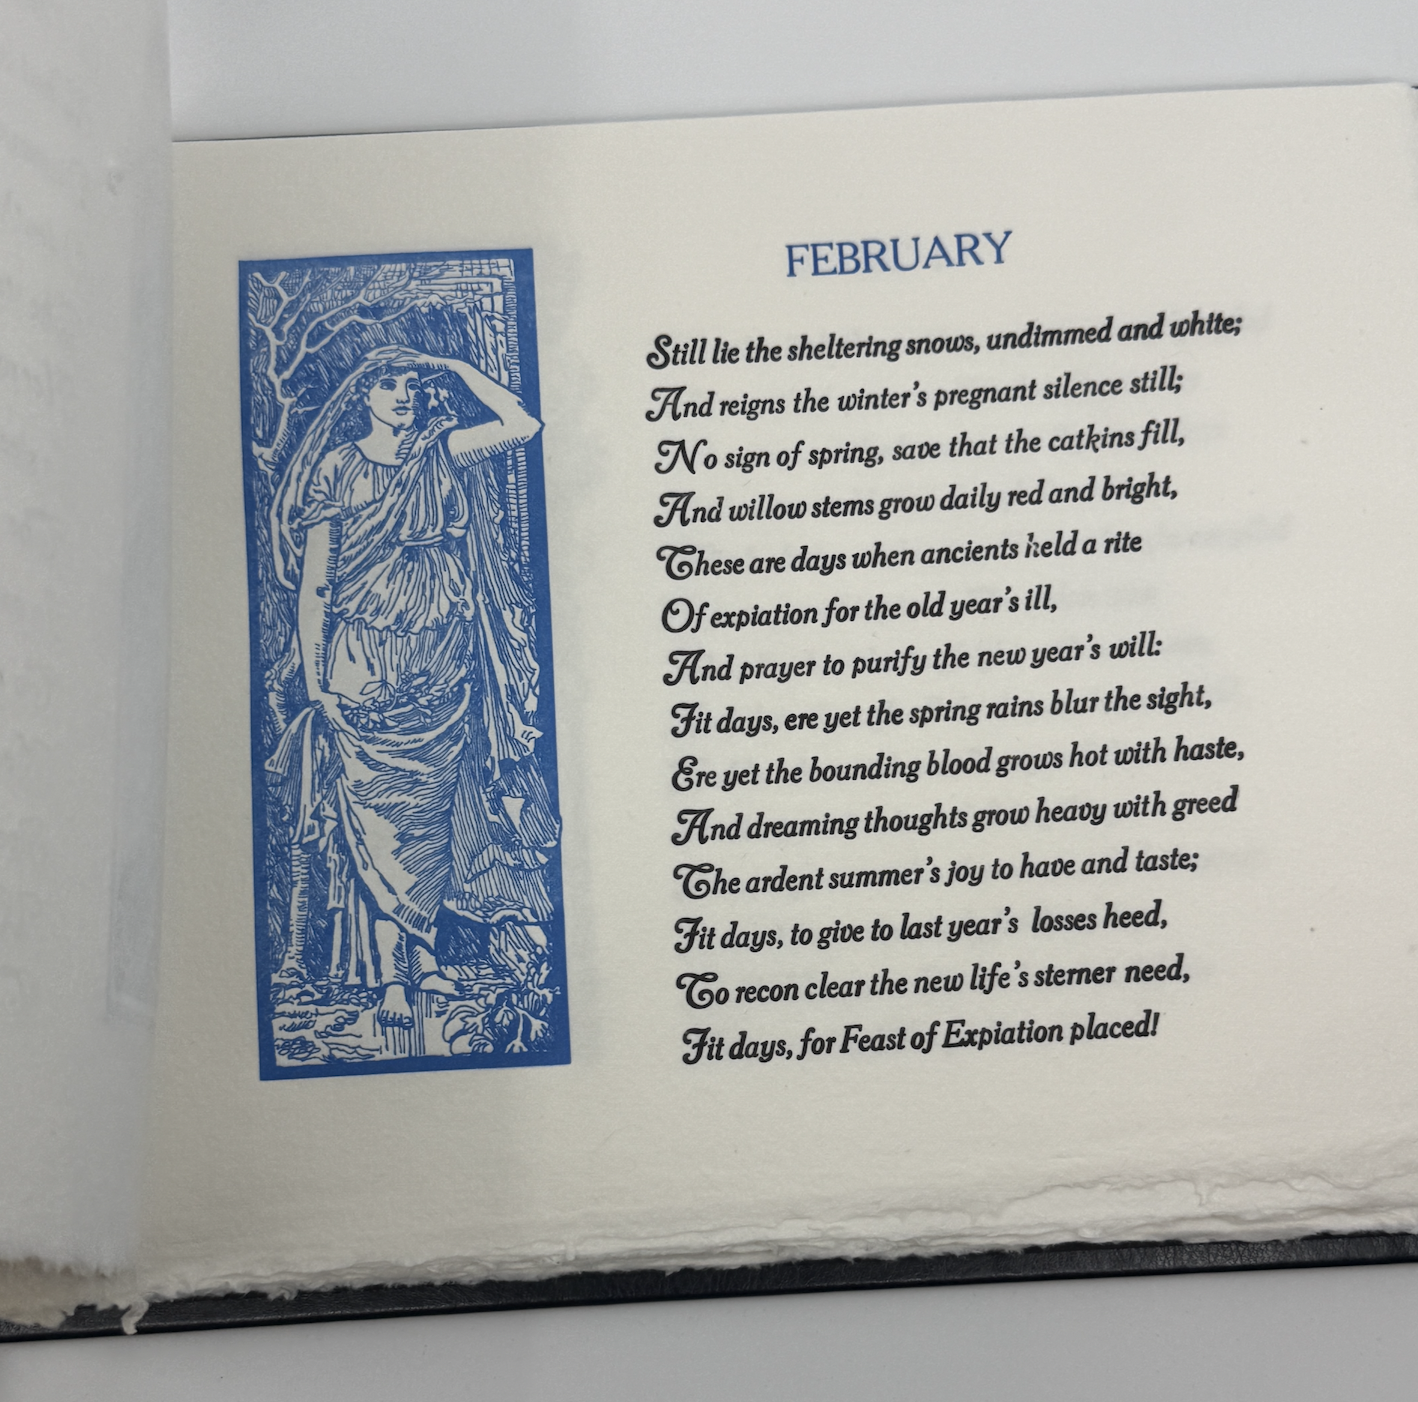 FEBRUARY
Still lie the sheltering snows, undimmed and white;
And reigns the winter's pregnant silence still;
No sign of spring, save that the catkins fill,
And willow stems grow daily red and bright,
These are days when ancients held a rite
Of expiation for the old year's ill,
And prayer to purify the new year's will:
Fit days, ere yet the spring rains blur the sight,
Ere yet the bounding blood grows hot with haste,
And dreaming thoughts grow heavy with greed
The ardent summer's joy to have and taste;
Fit days, to give to last year's losses heed,
To recon clear the new life's sterner need,
Fit days, for Feast of Expiation placed!